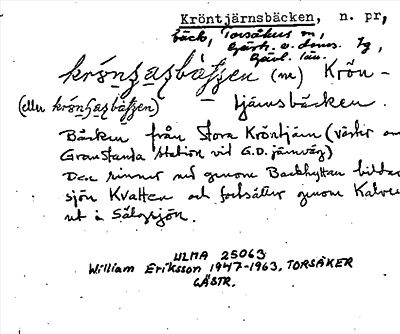 Kröntjärnsbäcken, n. pr,
bäck, Torsåkers sn,
Gästr. o. doms. Jg,
Gävl. län.
(m) Krön-
(eller
tjärnsbäcken.
Bäcken från Stora Kröntjärn (väster om
Granstanda station vid G.D. järnväg)
Den rinner ned genom Backhyttan bildar
sjön Kvatten och fortsätter genom Kalven
ut i Sälgsjön.
ULMA 25063
William Eriksson 1947-1963, TORSÅKER
GÄSTR.